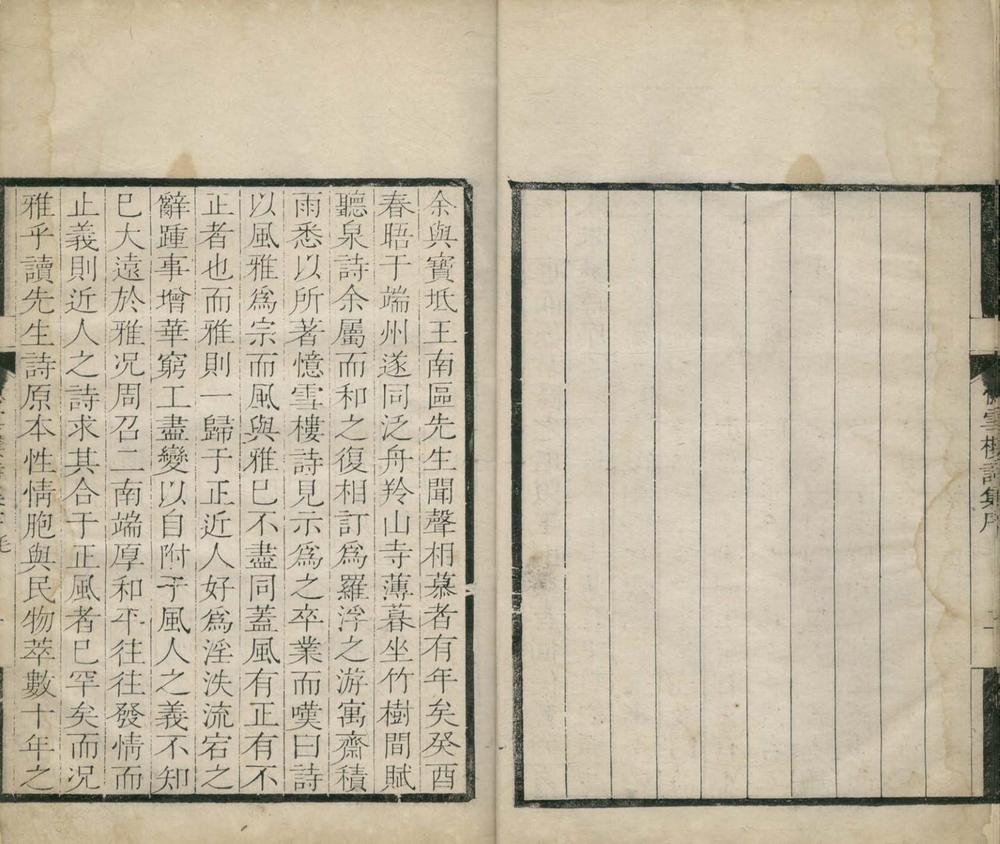 雪樓詩集序
余與寶坻王南區先生聞聲相慕者有年矣癸酉
春晤于端州遂同泛舟羚山寺薄暮坐竹樹間賦
聽泉詩余屬而和之復相訂爲羅浮之游寓齋積
雨悉以所著憶雪樓詩見示爲之卒業而嘆曰詩
以風雅爲宗而風與雅已不盡同蓋風有正有不
正者也而雅則一歸于正近人好爲淫泆流宕之
辭踵事增華窮工盡變以自附于風人之義不知
已大遠於雅况周召二南端厚和平往往發情而
止義則近人之詩求其合于正風者已罕矣而况
雅乎讀先生詩原本性情胞與民物萃數十年之